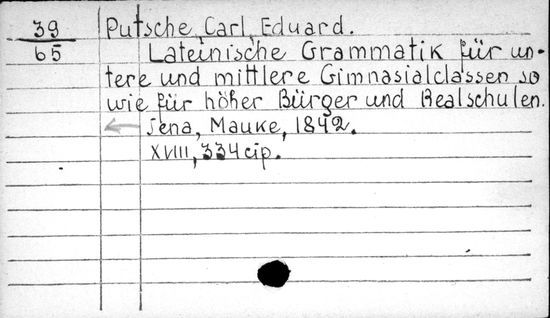 39 Putsche, Carl Eduard.
65 Lateinische Grammatik für un-
tere und mittlere Gimnasialclassen so
wie für höher Bürger und Realschulen.
Jena, Mauke, 1842.
XVIII, 334 cip.